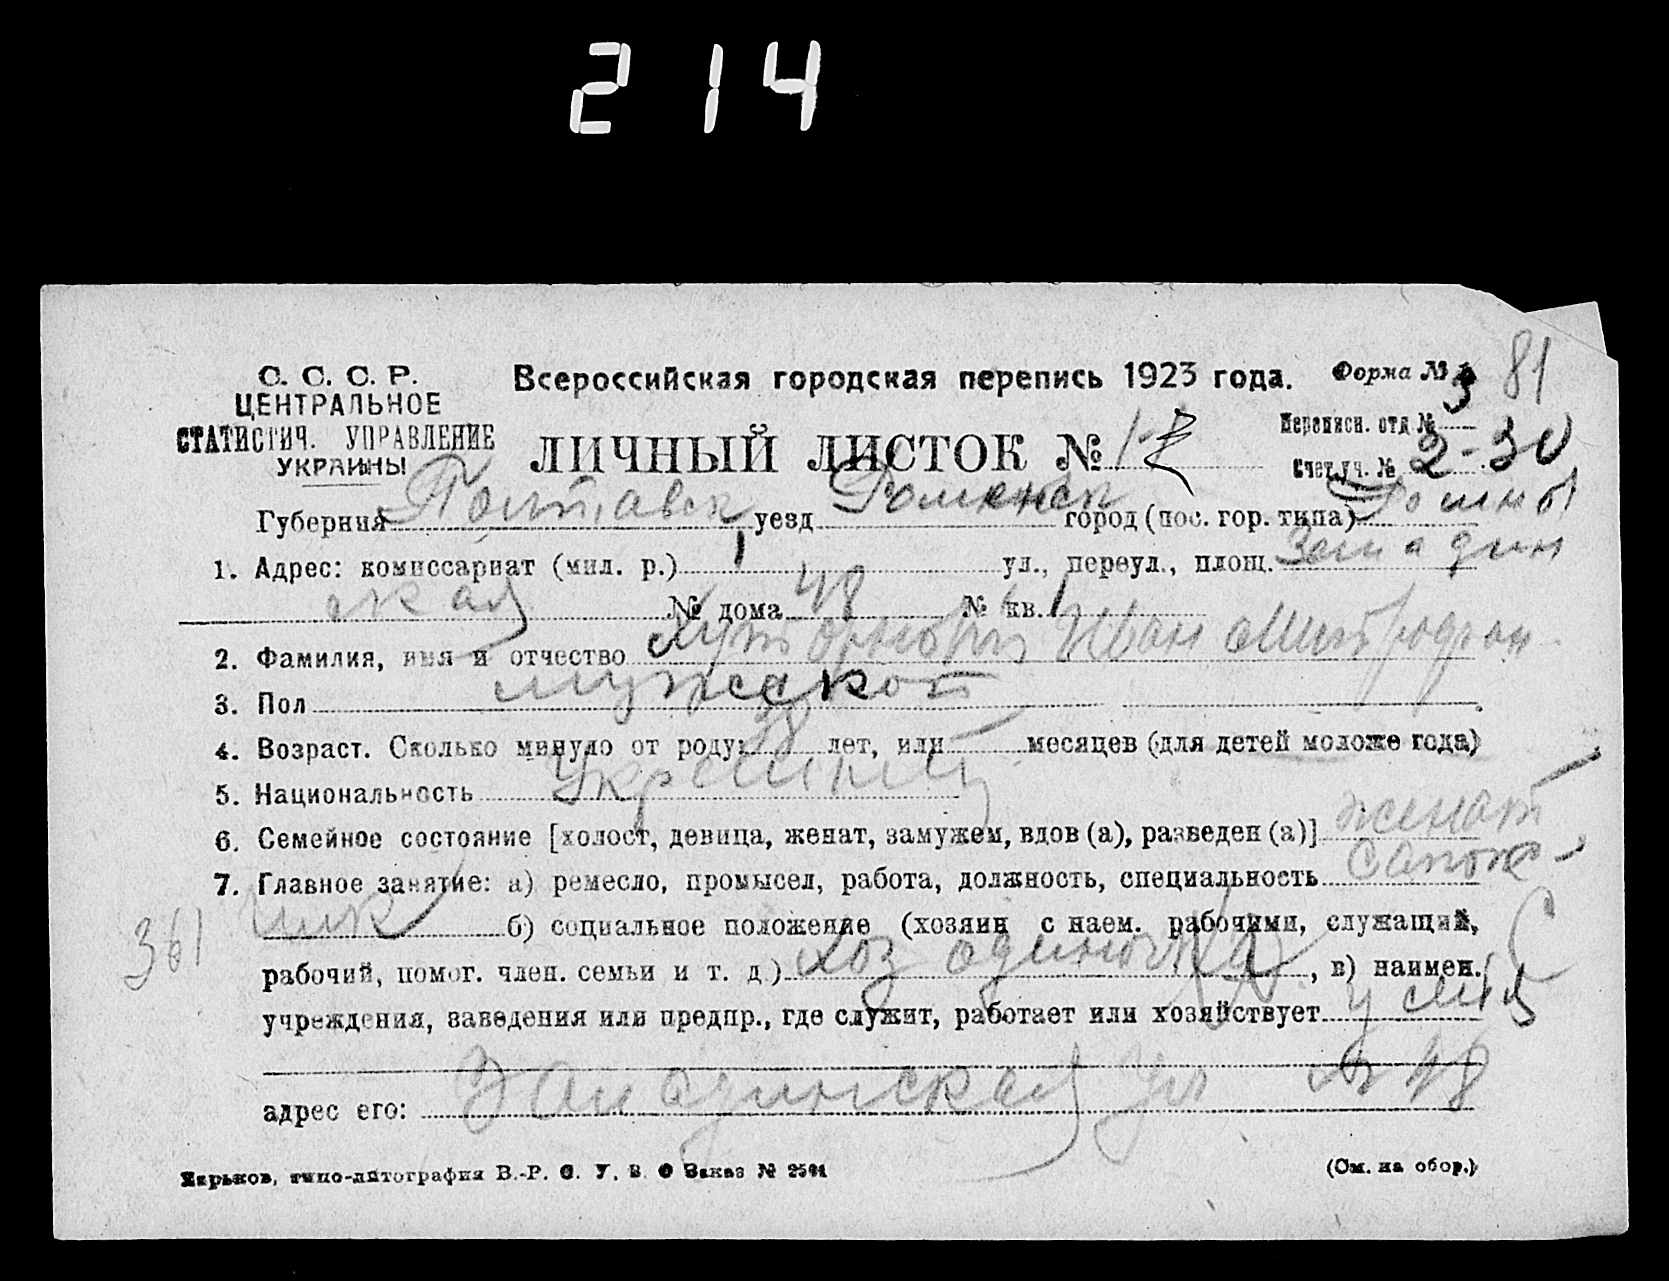 214
С. С. С. Р.
ЦЕНТРАЛЬНОЕ
СТАТИСТИЧ. УПРАВЛЕНИЕ
УКРАИНЫ
Всероссийская городская перепись 1923 года.
Форма № 3 81
ЛИЧНЫЙ ЛИСТОК №
Переписн. отд №
Счет. уч. № 2-30
Губерния Полтавск уезд Роменск город (пос. гор. типа) Ромны
1. Адрес: комиссариат (мил. р.) 1 ул., переул., площ. Западин
ская № дома 48 № кв. 1
2. Фамилия, имя и отчество Хуторновый Иван Митрофан
3. Пол мужской
4. Возраст. Сколько минуло от роду: 38 лет, или месяцев (для детей моложе года)
5. Национальность
6. Семейное состояние [холост, девица, женат, замужем, вдов (а), разведен (а)] женат
7. Главное занятие: а) ремесло, промысел, работа, должность, специальность сапож-
361 ник б) социальное положение (хозяин с наем. рабочими, служащий,
рабочий, помог. член. семьи и т. д.) хоз одиночка, в) наимен.
учреждения, заведения или предпр., где служит, работает или хозяйствует у себя
адрес его: Западинская ул № 48
Харьков, типо-литография В.-Р. С. У. В. О Заказ № 2594
(См. на обор.)